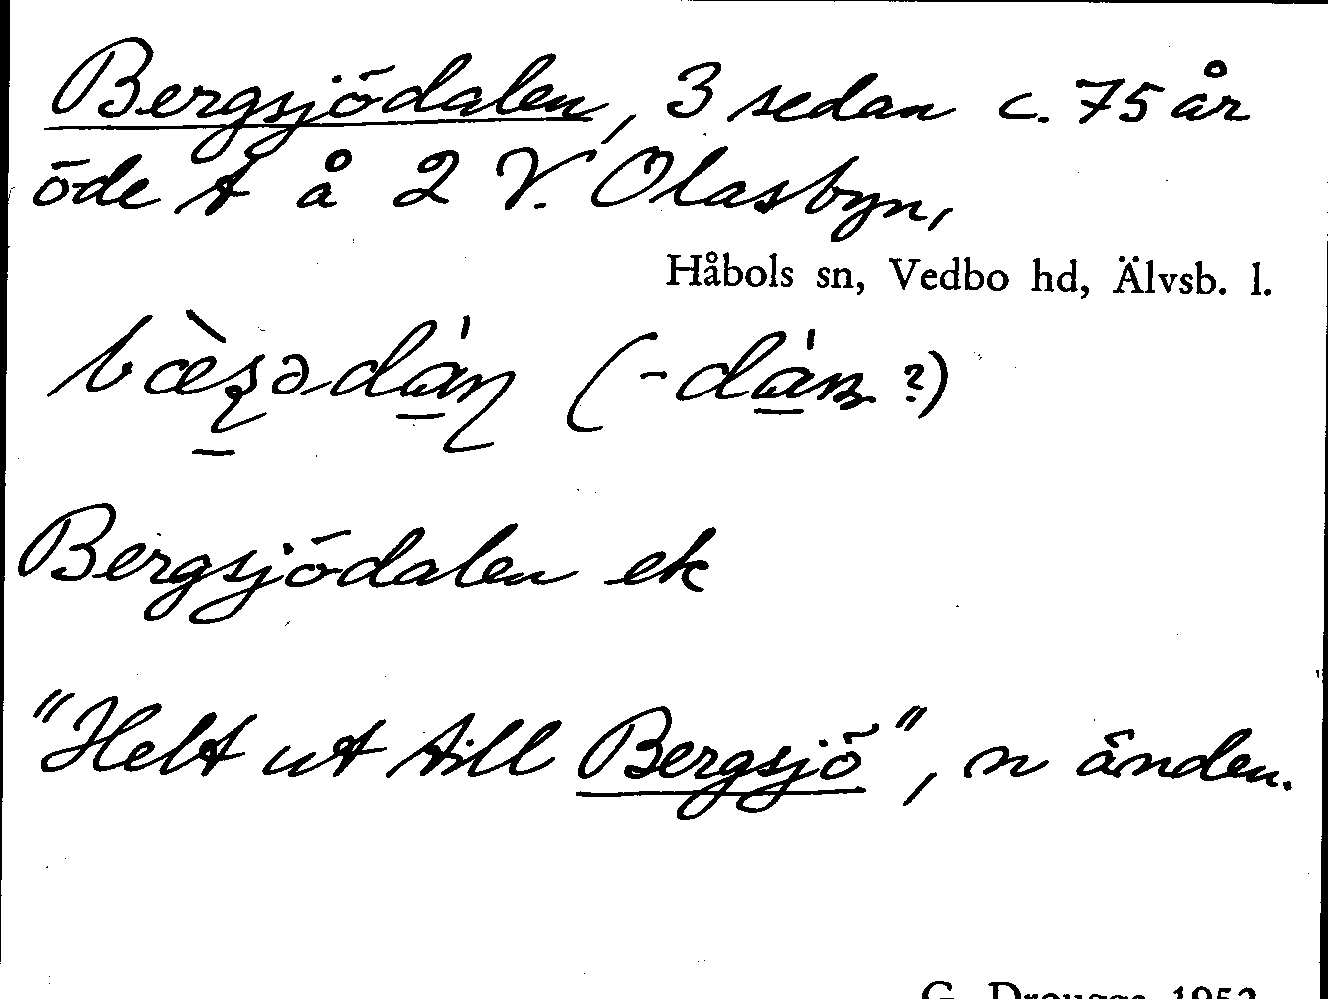 Bergsjödalen, 3 sedan c. 75 år
öde t å 2 V. Olasbyn,
Håbols sn, Vedbo hd, Älvsb. l.
Bergsjödalen ek
"Helt ut till Bergsjö", n änden.
1952